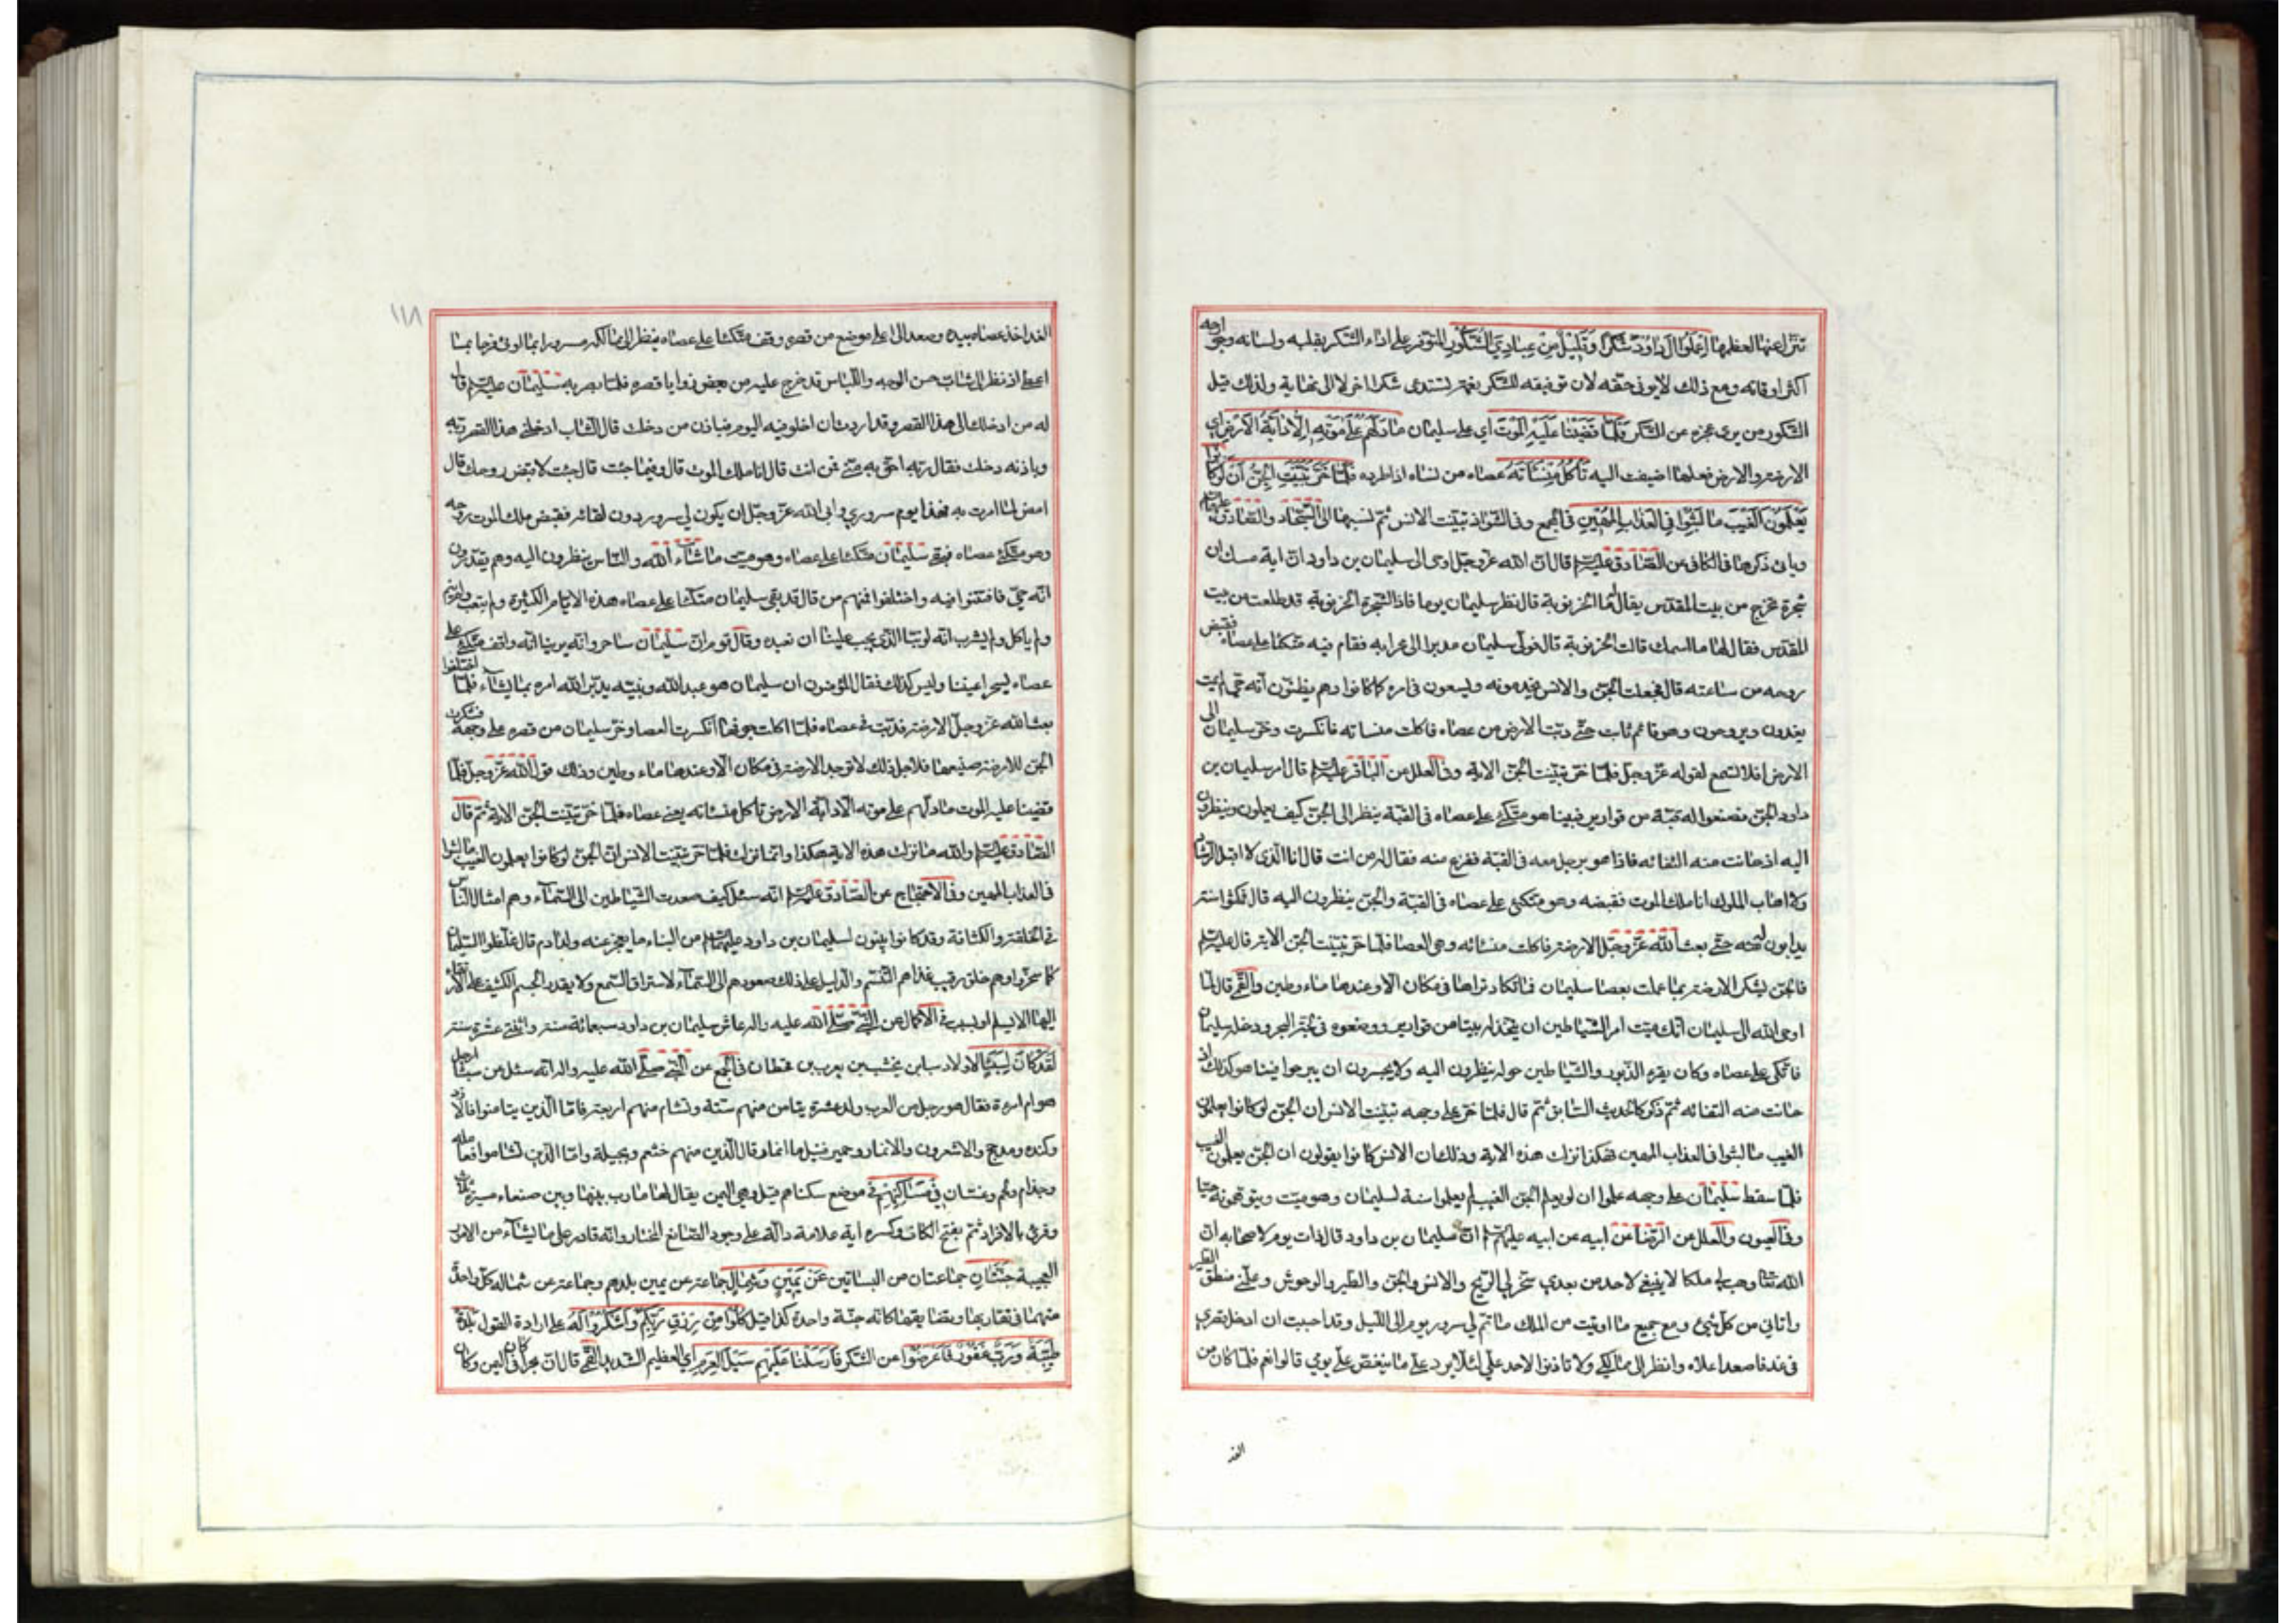 تنزل عنها لعظمها اعملوا آل داود شكرا وقليل من عبادي الشكور المتوفر على اداء الشكر بقلبه ولسانه وجوارحه
اكثر اوقاته ومع ذلك لا يوفى حقه لان توفيقه للشكر نعمة تستدعى شكرا اخر لا الى نهاية ولذلك قيل
الشكور من يرى عجزه عن الشكر فلما قضينا عليه الموت اي على سليمان ما دلهم على موته الا دابة الارض اي
الارضة والارض فعلها اضيفت اليه تأكل منسأته عصاه من نساه اذا طرده فلما خر تبينت الجن ان لو كانوا
يعلمون الغيب ما لبثوا في العذاب المهين في المجمع وفى الشواذ تبينت الانس ثم نسبها الى السجاد والصادق عليهما السلم
وياتى ذكرها في الكافى عن الصادق عليه السلم قال ان الله عز وجل اوحى الى سليمان بن داود ان اية موتك ان
شجرة تخرج من بيت المقدس يقال لها الخرنوبة قال نظر سليمان يوما فاذا الشجرة الخرنوبة قد طلعت من بيت
المقدس فقال لها ما اسمك قالت الخرنوبة قال فولى سليمان مدبرا الى محرابه فقام فيه متكئا على عصاه فقبض
روحه من ساعته قال فجعلت الجن والانس يخدمونه ويسعون في امره كما كانوا وهم يظنون انه حي لم يمت
يغدون ويروحون وهو قائم ثابت حتى دبت الارض من عصاه فاكلت منساته فانكسرت وخر سليمان الى
الارض افلا تسمع لقوله عز وجل فلما خر تبينت الجن الاية وفى العلل عن الباقر عليه السلم قال امر سليمان بن
داود الجن فصنعوا له قبة من قوارير فبينا هو متكئ على عصاه فى القبة ينظر الى الجن كيف يعملون وينظرون
اليه اذ حانت منه التفاتة فاذا هو برجل معه فى القبة ففزع منه فقال له من انت قال انا الذى لا اقبل الرشا
ولا اهاب الملوك انا ملك الموت فقبضه وهو متكئ على عصاه فى القبة والجن ينظرون اليه قال فمكثوا سنة
يدابون له حتى بعث الله عز وجل الارضة فاكلت منساته وهى العصا فلما خر تبينت الجن الاية قال عليه السلم
فالجن يشكر الارضة بما عملت بعصا سليمان فما تكاد تراها فى مكان الا وعندها ماء وطين والقمى قال لما
اوحى الله الى سليمان انك ميت امر الشياطين ان يتخذوا له بيتا من قوارير ووضعوه فى لجة البحر ودخله سليمان
فاتكى على عصاه وكان يقرء الزبور والشياطين حوله ينظرون اليه ولا يجسرون ان يبرحوا فبينا هو كذلك اذ
حانت منه التفاتة ثم ذكر كالحديث السابق ثم قال فلما خر على وجهه تبينت الانس ان الجن لو كانوا يعلمون
الغيب ما لبثوا في العذاب المهين فهكذا نزلت هذه الاية وذلك ان الانس كانوا يقولون ان الجن يعلمون الغيب
فلما سقط سليمان على وجهه علموا ان لو يعلم الجن الغيب لم يعملوا سنة لسليمان وهو ميت ويتوهمونه حيا
وفى العيون والعلل عن الرضا عن ابيه عن ابيه عليهم السلم ان سليمان بن داود قال ذات يوم لاصحابه ان
الله تعالى وهب لي ملكا لا ينبغي لاحد من بعدي سخر لي الريح والانس والجن والطير والوحوش وعلمنى منطق الطير
واتاني من كل شيء ومع جميع ما اوتيت من الملك ما تم لي سرور يوم الى الليل وقد احببت ان ادخل قصري
فى غد فاصعد اعلاه وانظر الى ممالكي ولا تاذنوا لاحد علي لئلا يرد علي ما ينغص علي يومي قالوا نعم فلما كان من
الغد
١١٨
الغد اخذ عصاه بيده وصعد الى اعلى موضع من قصره وقف متكئا على عصاه ينظر الى ممالكه مسرورا بما اوتى فرحا بما
اعطى اذ نظر الى شاب حسن الوجه واللباس قد خرج عليه من بعض زوايا قصره فلما بصر به سليمان عليه السلم قال
له من ادخلك الى هذا القصر وقد اردت ان اخلو فيه اليوم فباذن من دخلت قال الشاب ادخلنى هذا القصر ربه
وباذنه دخلت فقال ربه احق به منى فمن انت قال انا ملك الموت قال وفيما جئت قال جئت لاقبض روحك قال
امض لما امرت به فهذا يوم سروري وابى الله عز وجل ان يكون لي سرور دون لقائه فقبض ملك الموت روحه
وهو متكئ على عصاه فبقى سليمان متكئا على عصاه وهو ميت ما شاء الله والناس ينظرون اليه وهم يقدرون
انه حي فافتتنوا فيه واختلفوا فمنهم من قال قد بقى سليمان متكئا على عصاه هذه الايام الكثيرة ولم يتعب ولم ينم
ولم ياكل ولم يشرب انه لربنا الذي يجب علينا ان نعبده وقال قوم ان سليمان ساحر وانه يرينا انه واقف متكئ على
عصاه يسحر اعيننا وليس كذلك فقال المؤمنون ان سليمان هو عبد الله ونبيه يدبر الله امره بما يشاء فلما اختلفوا
بعث الله عز وجل الارضة فدبت في عصاه فلما اكلت جوفها انكسرت العصا وخر سليمان من قصره على وجهه فشكرت
الجن للارضة صنيعها فلاجل ذلك لا توجد الارضة فى مكان الا وعندها ماء وطين وذلك قول الله عز وجل فلما
قضينا عليه الموت ما دلهم على موته الا دابة الارض تاكل منساته يعنى عصاه فلما خر تبينت الجن الاية ثم قال
الصادق عليه السلم والله ما نزلت هذه الاية هكذا وانما نزلت فلما خر تبينت الانس ان الجن لو كانوا يعلمون الغيب ما لبثوا
في العذاب المهين وفى الاحتجاج عن الصادق عليه السلم انه سئل كيف صعدت الشياطين الى السماء وهم امثال الناس
فى الخلقة والكثافة وقد كانوا يبنون لسليمان بن داود عليهما السلم من البناء ما يعجز عنه ولد ادم قال غلظوا لسليمان
كما سخروا وهم خلق رقيق غذاهم التنسم والدليل على ذلك صعودهم الى السماء لاستراق السمع ولا يقدر الجسم الكثيف على الارتقاء
اليها الا بسلم او سبب فى الاكمال عن النبي صلى الله عليه واله عاش سليمان بن داود سبعمائة سنة واثنتى عشرة سنة
لقد كان لسبا لاولاد سبا بن يشجب بن يعرب بن قحطان فى المجمع عن النبي صلى الله عليه واله انه سئل عن سبا ارجل
هو ام امرءة فقال هو رجل من العرب ولد عشرة تيامن منهم ستة وتشام منهم اربعة فاما الذين تيامنوا فالازد
وكنده ومدحج والاشعرون والانمار وحمير فقيل ما انمار قال الذين منهم خثعم وبجيلة واما الذين تشاموا فعاملة
وجذام ولخم وغسان في مساكنهم فى موضع سكناهم قيل وهى اليمن يقال لها مارب بينها وبين صنعاء مسيرة ثلث
وقرئ بالافراد ثم بفتح الكاف وكسره اية علامة دالة على وجود الصانع المختار وانه قادر على ما يشاء من الامور
العجيبة جنتان جماعتان من البساتين عن يمين وشمال جماعة عن يمين بلدهم وجماعة عن شماله كل واحدة
منهما فى تقاربها وتضايقها كانه جنة واحدة كذا قيل كلوا من رزق ربكم واشكروا له على ارادة القول بلدة
طيبة ورب غفور فاعرضوا عن الشكر فارسلنا عليهم سيل العرم اي العظيم الشديد القمى قال ان بحرا كان فى اليمن وكان